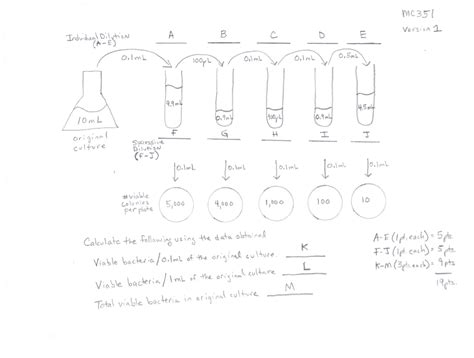 MC351
Version 1
Individual Dilution
(A-E)
A B C D E
0.1mL 100µL 0.1mL 0.1mL 0.5mL
10mL
original
culture
9.9mL 0.9mL 900µL 0.9mL 4.5mL
F G H I J
Successive
Dilution
(F-J)
0.1mL 0.1mL 0.1mL 0.1mL 0.1mL
#viable
colonies
per plate
5,000 4,000 1,000 100 10
Calculate the following using the data obtained
Viable bacteria/0.1mL of the original culture K
Viable bacteria/1mL of the original culture L
Total viable bacteria in original culture M
A-E (1pt. each) = 5pts
F-J (1pt each) = 5pts
K-M (3pts each) = 9pts
19pts.